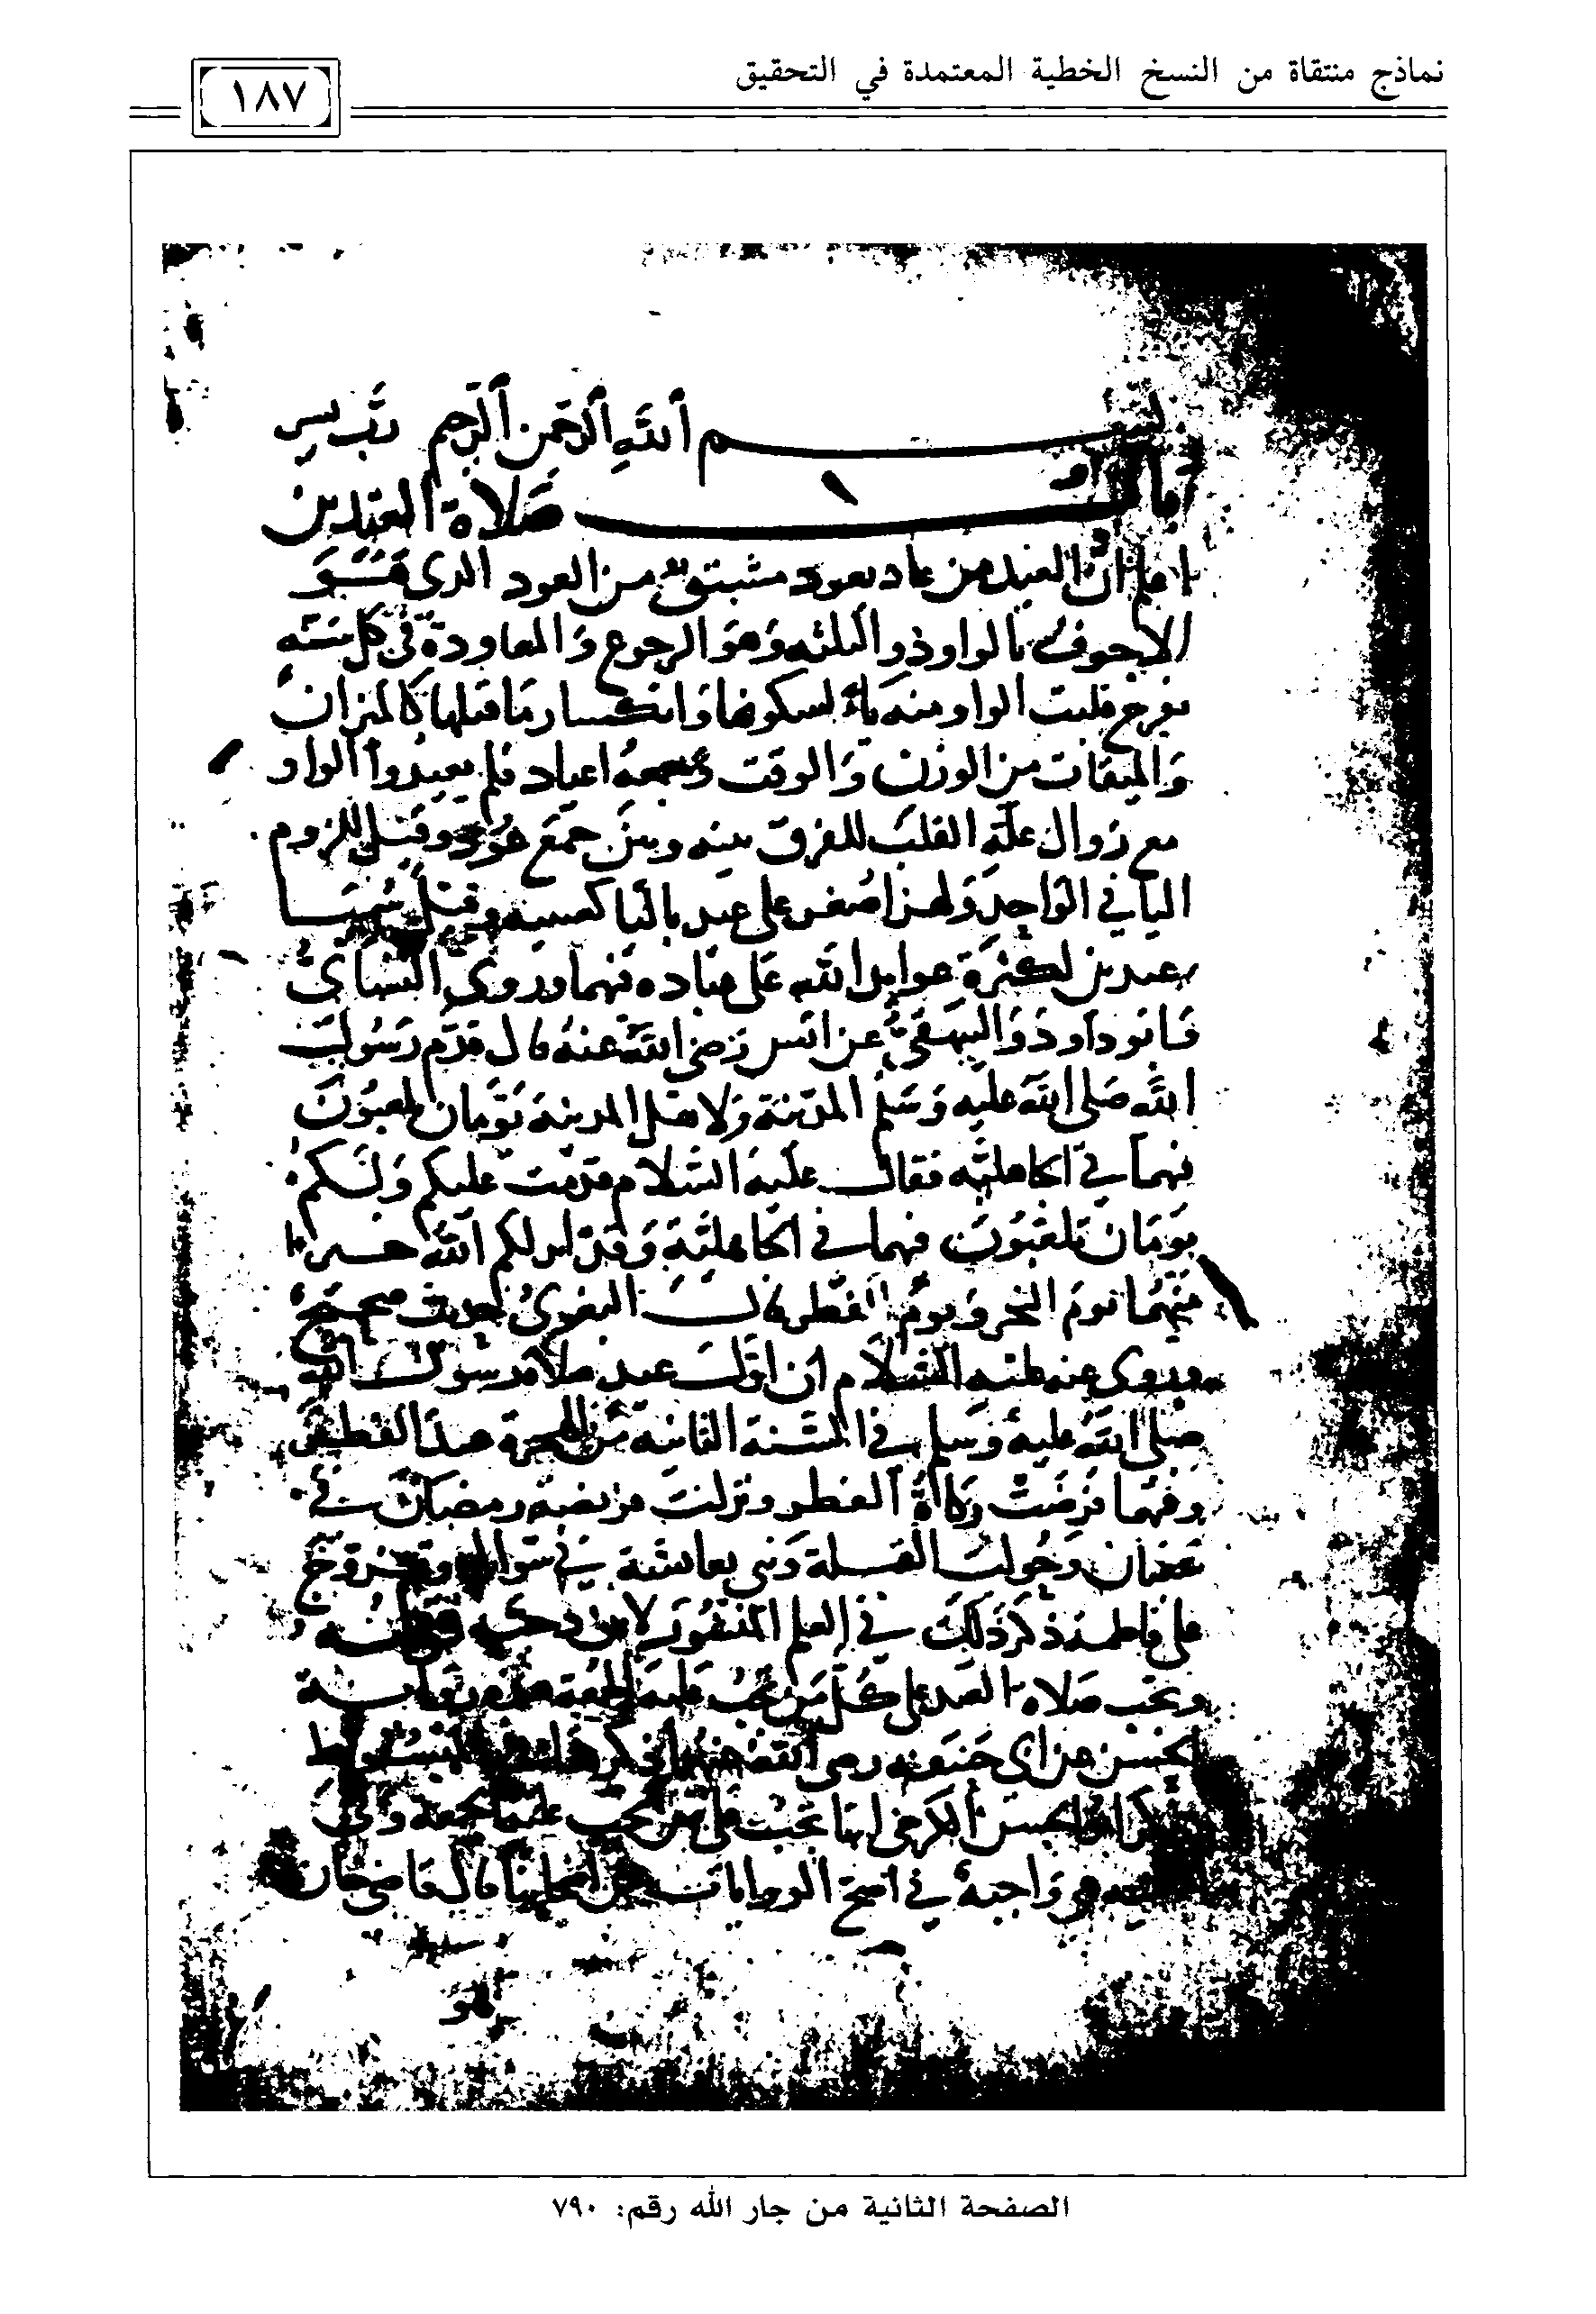 نماذج منتقاة من النسخ الخطية المعتمدة في التحقيق
١٨٧
بسم الله الرحمن الرحيم رب يسر
باب صلاة العيدين
اعلم ان العيد من عاد يعود مشتق من العود الذى هو
الاجوف بالواو ذو الثلثه وهو الرجوع والمعاودة في كل سنه
بفرح قلبت الواو منه ياء لسكونها وانكسار ما قبلها كالميزان
والميقات من الوزن والوقت وجمعه اعياد فلم يعيدوا الواو
مع زوال علة القلب للفرق بينه وبين جمع عود وقيل للزوم
اليا في الواحد ولهذا صغر على عييد باليا كصيغه وقيل سميا
عيدين لكثرة عوايد الله على عباده فيهما وروى النسائي
وابو داود والبيهقي عن انس رضي الله عنه قال قدم رسول
الله صلى الله عليه وسلم المدينة ولاهل المدينة يومان يلعبون
فيهما في الجاهلية فقال عليه السلام قدمت عليكم ولكم
يومان تلعبون فيهما في الجاهلية وقد ابدلكم الله خيرا
منهما يوم النحر ويوم الفطر قال البغوى حديث صحيح
وروى عنه عليه السلام ان اول عيد صلاه رسول الله
صلى الله عليه وسلم في السنة الثانية من الهجرة عيد الفطر
وفيها فرضت زكاة الفطر ونزلت فريضة رمضان في
شعبان وحولت القبلة وبنى بعايشة في شوال وتزوج
على فاطمة ذكر ذلك في العلم المنشور لابن دحية
وتجب صلاة العيد على كل من تجب عليه الجمعة هذه رواية
الحسن عن ابي حنيفه رضي الله عنهما في المبسوط
الحسن الكرخي انها تجب على من تجب عليه الجمعة وفي
واجبة في اصح الروايات عن اصحابنا قال قاضي خان
الصفحة الثانية من جار الله رقم: ٧٩٠